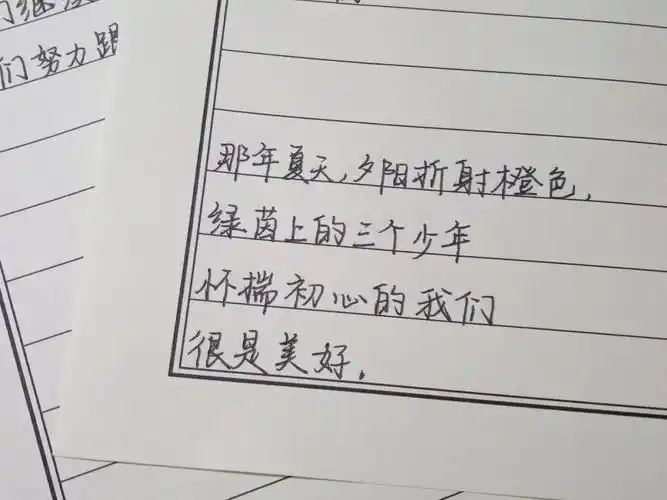 们努力跟
那年夏天,夕阳折射橙色,
绿茵上的三个少年
怀揣初心的我们
很是美好.